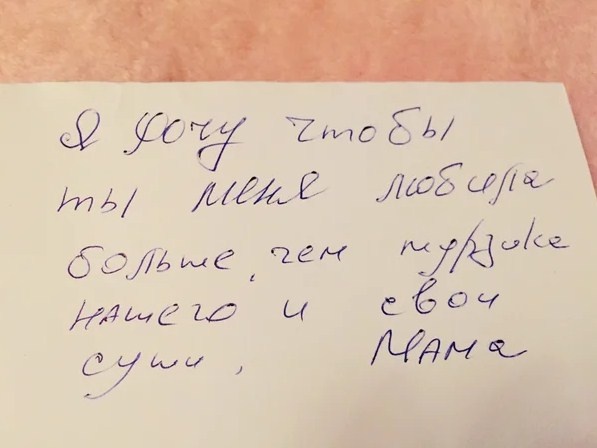 Я хочу чтобы
ты меня любила
больше, чем мурзика
нашего и свои
суши, Мама